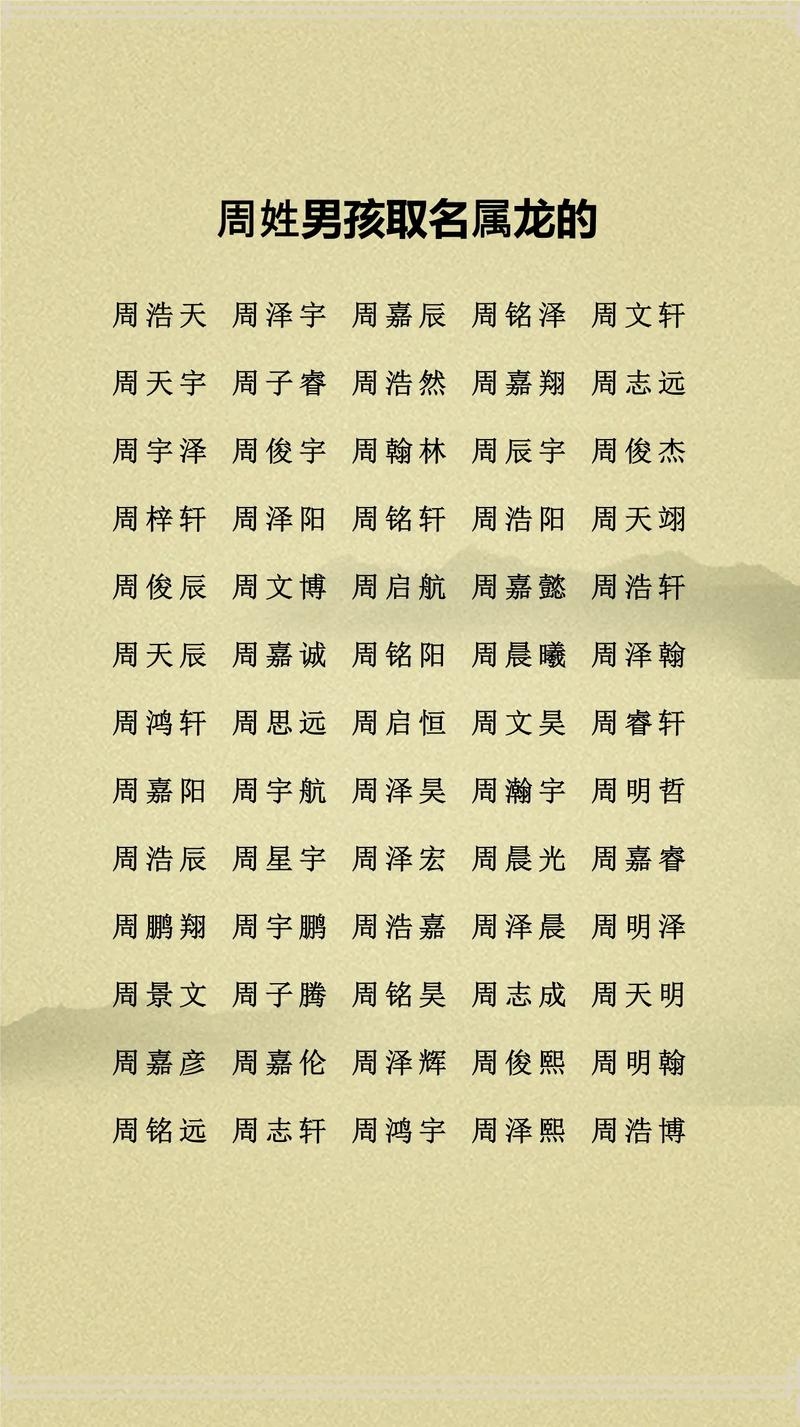 周姓男孩取名属龙的
周浩天 周泽宇 周嘉辰 周铭泽 周文轩
周天宇 周子睿 周浩然 周嘉翔 周志远
周宇泽 周俊宇 周翰林 周辰宇 周俊杰
周梓轩 周泽阳 周铭轩 周浩阳 周天翊
周俊辰 周文博 周启航 周嘉懿 周浩轩
周天辰 周嘉诚 周铭阳 周晨曦 周泽翰
周鸿轩 周思远 周启恒 周文昊 周睿轩
周嘉阳 周宇航 周泽昊 周瀚宇 周明哲
周浩辰 周星宇 周泽宏 周晨光 周嘉睿
周鹏翔 周宇鹏 周浩嘉 周泽晨 周明泽
周景文 周子腾 周铭昊 周志成 周天明
周嘉彦 周嘉伦 周泽辉 周俊熙 周明翰
周铭远 周志轩 周鸿宇 周泽熙 周浩博